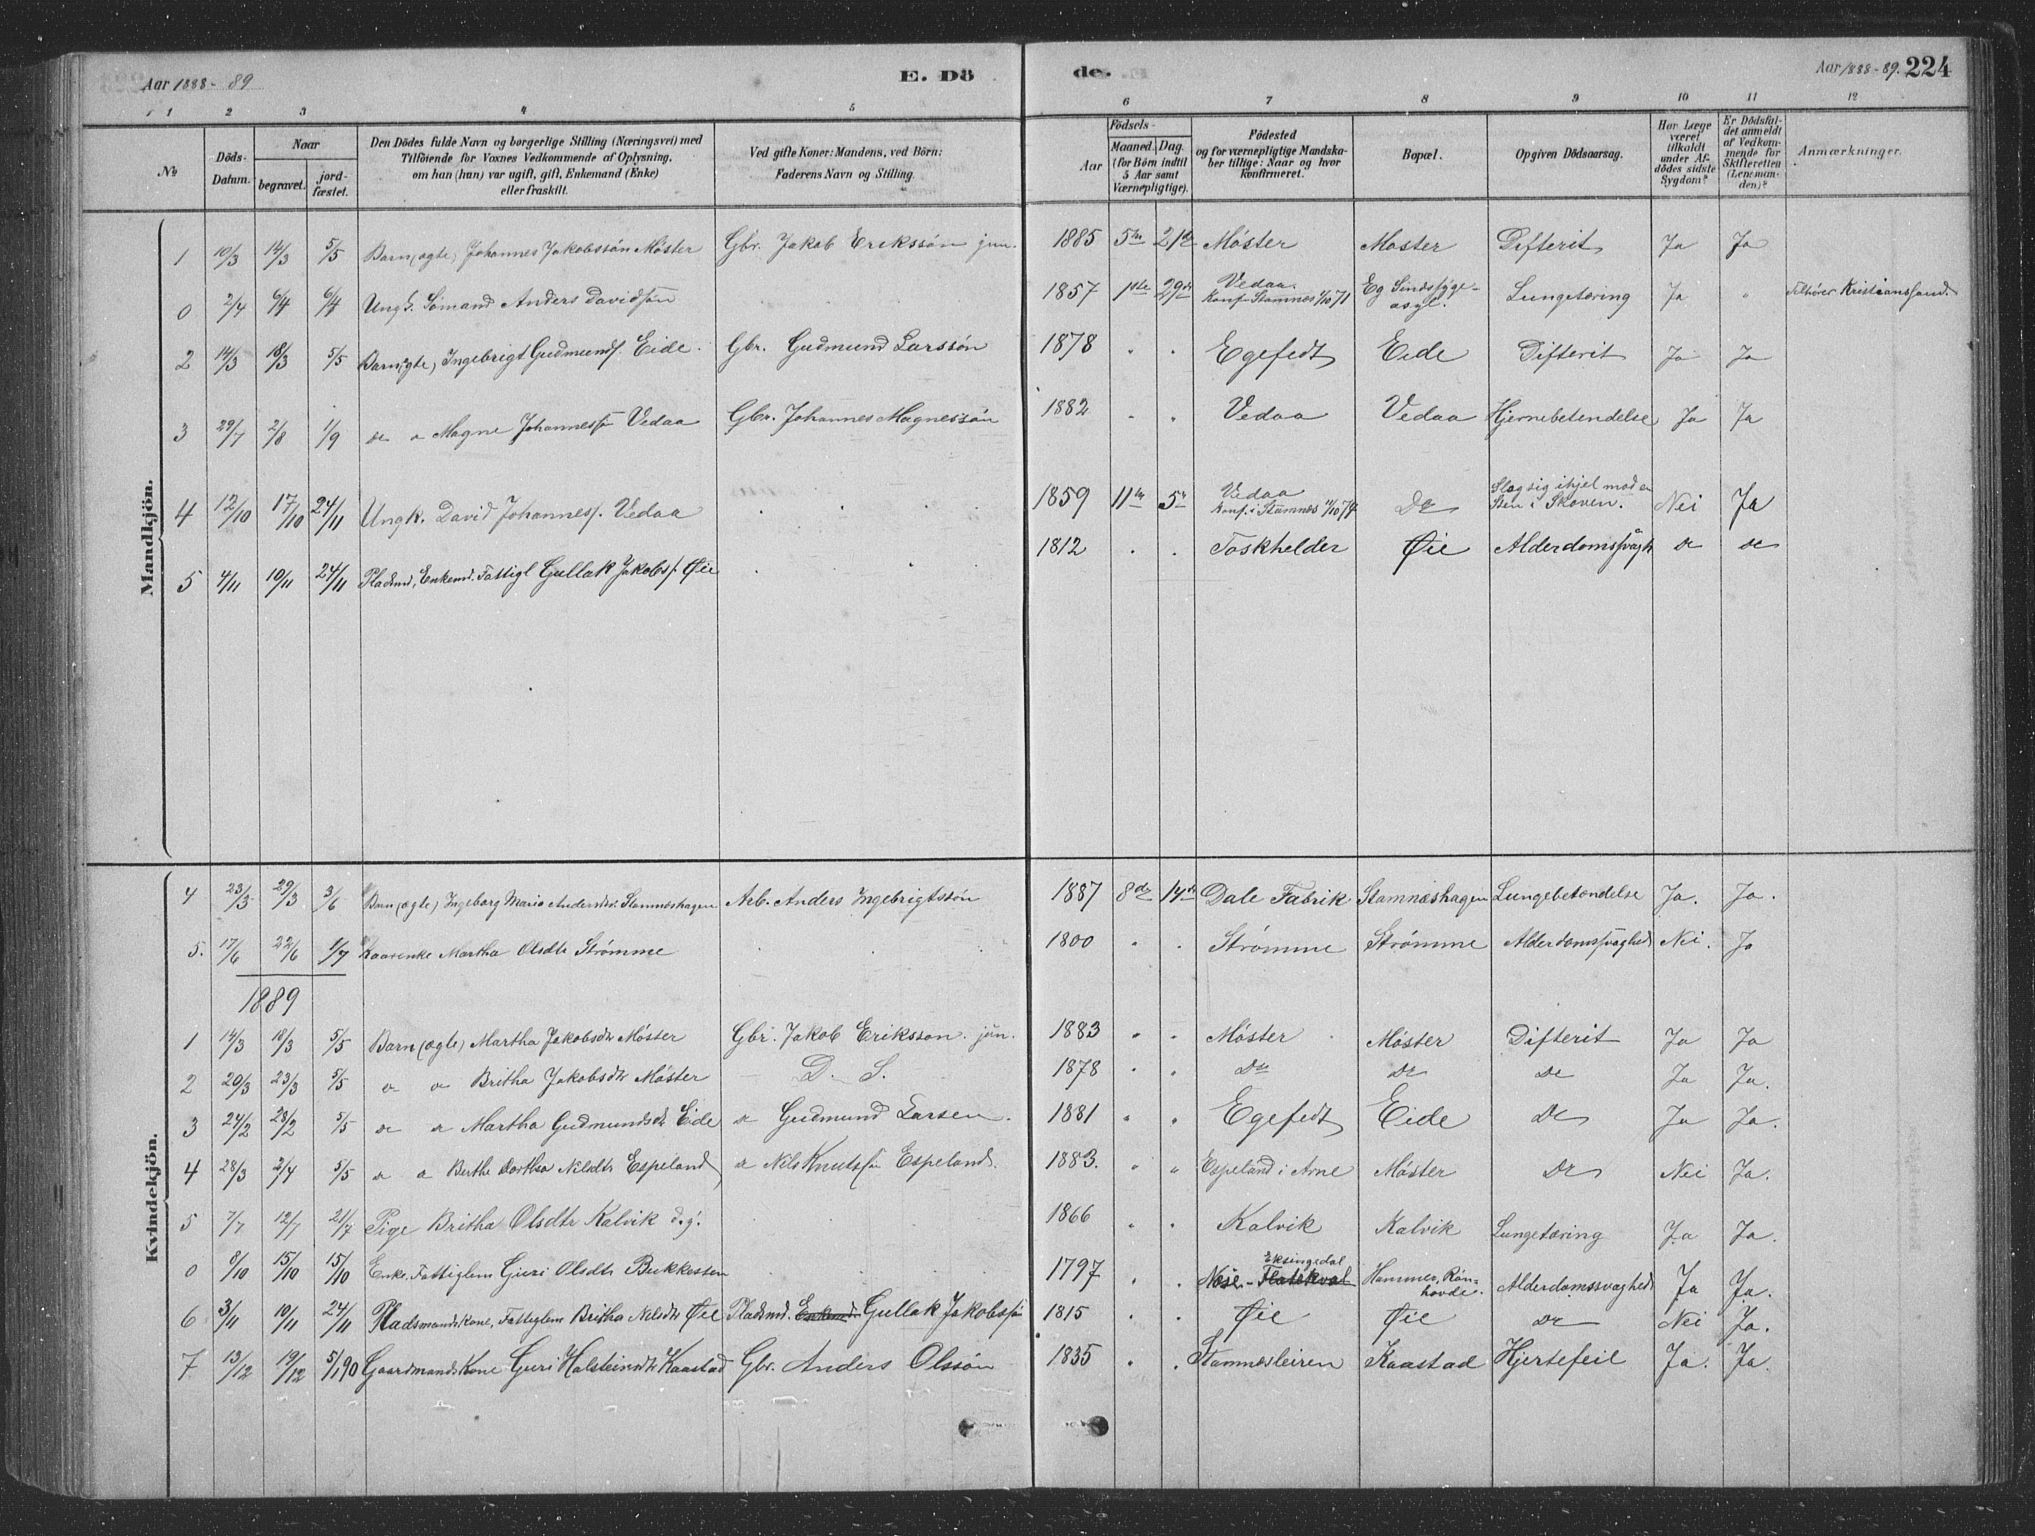 Aar 1888-89 E. Dö de. Aar 1888-89. 224
1 2 3 4 5 6 7 8 9 10 11 12
No Döds-Datum. Naar begravet. jordfæstet. Den Dödes fulde Navn og borgerlige Stilling (Næringsvei) med Tilföiende for Voxnes Vedkommende af Oplysning, om han (hun) var ugift, gift, Enkemand (Enke) eller fraskilt. Ved gifte Koner: Mandens, ved Börn: Faderens Navn og Stilling. Aar Födsels- Maaned. Dag. (for Börn indtil 5 Aar samt Værnepligtige). Födested og for værnepligtige Mandskaber tillige: Naar og hvor konfirmeret. Bopæl. Opgiven Dödsaarsag. Har Læge været tilkaldt under Afdödes sidste Sygdom? Er Dödsfaldet anmeldt af Vedkommende for Skifteretten (Lensmanden)? Anmærkninger.
Mandkjön.
1 10/3 14/3 5/5 Barn (ægte) Johannes Jakobssön Möster Gbr. Jakob Erikssön jun. 1885 5te 21de Möster Moster Difterit Ja Ja
0 2/4 6/4 6/4 Ungk. Sømand Anders Davidsön 1857 1ste 29de Vedaa. Konf. Stamnes 1/10 71 Eg Sindssygeasyl. Lungetæring Ja " Tilhører Kristianssand.
2 14/3 18/3 5/5 Barn (ægte) Ingebrigt Gudmunds. Eide. Gbr. Gudmund Larssön 1878 " " Egefedt Eide Difterit Ja Ja
3 29/7 2/8 1/9 do o Magne Johannessön Vedaa Gbr. Johannes Magnessön 1882 " " Vedaa Vedaa Hjernebetendelse Ja Ja
4 12/10 17/10 24/11 Ungk. David Johannes. Vedaa 1859 11te 5te Vedaa Konf. i Stamnes 11/10 74 Do Slog sig ihjel mod en Sten i Skoven. Nei Ja
5 4/11 10/11 24/11 Pladsmd, Enkemd. Fattigl Gullak Jakobs. Øie 1812 " " Toskhelder Øie Alderdomssvagh do do
Kvindekjön.
4 23/3 29/3 3/6 Barn (ægte) Ingeborg Maria Andersdtr. Stamneshagen Arb. Anders Ingebrigtssön 1887 8de 14de Dale Fabrik Stamneshagen Lungebetændelse Ja. Ja.
5. 17/6 22/6 1/7 Kaarenke Martha Olsdtr Strømme 1800 " " Strømme Strømme Alderdomssvaghed Nei. Ja
1889
1 14/3 18/3 5/5 Barn (ægte) Martha Jakobsdtr Möster Gbr. Jakob Eriksson. jün. 1883 " " Möster Möster Difterit Ja Ja
2 20/3 23/3 5/5 o o Britha Jakobsdtr Möster D. S. 1878 " " Do Do Do Ja Ja.
3 24/2 28/2 5/5 do o Martha Gudmundsdtr Eide do Gudmund Larsen. 1881 " " Egefedt Eide Do Ja Ja.
4 28/3 2/4 5/5 o o Berthe Dorthea Nilsdtr Espeland do Nils Knutsön Espeland. 1883. " " Espeland i Arne Möster Do Nei Ja.
5 7/7 12/7 21/7 Pige Britha Olsdtr Kalvik 1866 " " Kalvik Kalvik Lungetæring Ja Ja.
0 8/10 15/10 15/10 Enke, Fattiglem Guri Olsdtr Bukkesten 1797 " " Nese - Flatekval Eksingedal Hammer, Rönhovde. Alderdomssvaghed Ja Ja.
6 3/11 10/11 24/11 Pladsmandskone, Fattiglem Britha Nilsdtr Øie Pladsmd. Enkemd Gullak Jakobssön 1815 " " Øie Øie Do Nei Ja.
7 13/12 19/12 5/1 90 Gaardmandskone Guri Halsteinsdtr Kaastad Gbr. Anders Olssön 1835 " " Stamnesleiren Kaastad Hjertefeil Ja. Ja.